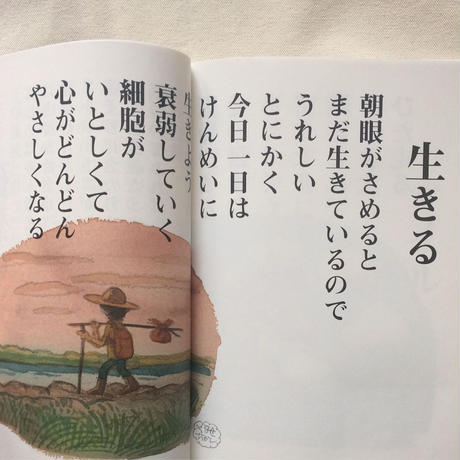 生きる
朝眼がさめると
まだ生きているので
うれしい
とにかく
今日一日は
けんめいに
生きよう
衰弱していく
細胞が
いとしくて
心がどんどん
やさしくなる